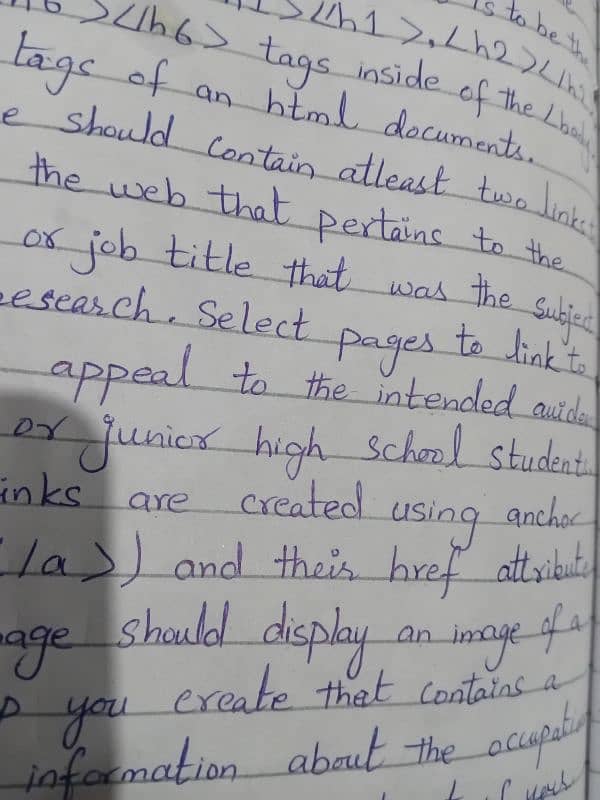 ></h6> tags inside of the <body
tags of an html documents.
e should contain atleast two links
the web that pertains to the
or job title that was the subject
esearch. Select pages to link to
appeal to the intended auide
or junior high school students
inks are created using anchor
</a>) and their href attribute
age should display an image of a
p you create that contains a
information about the occupation